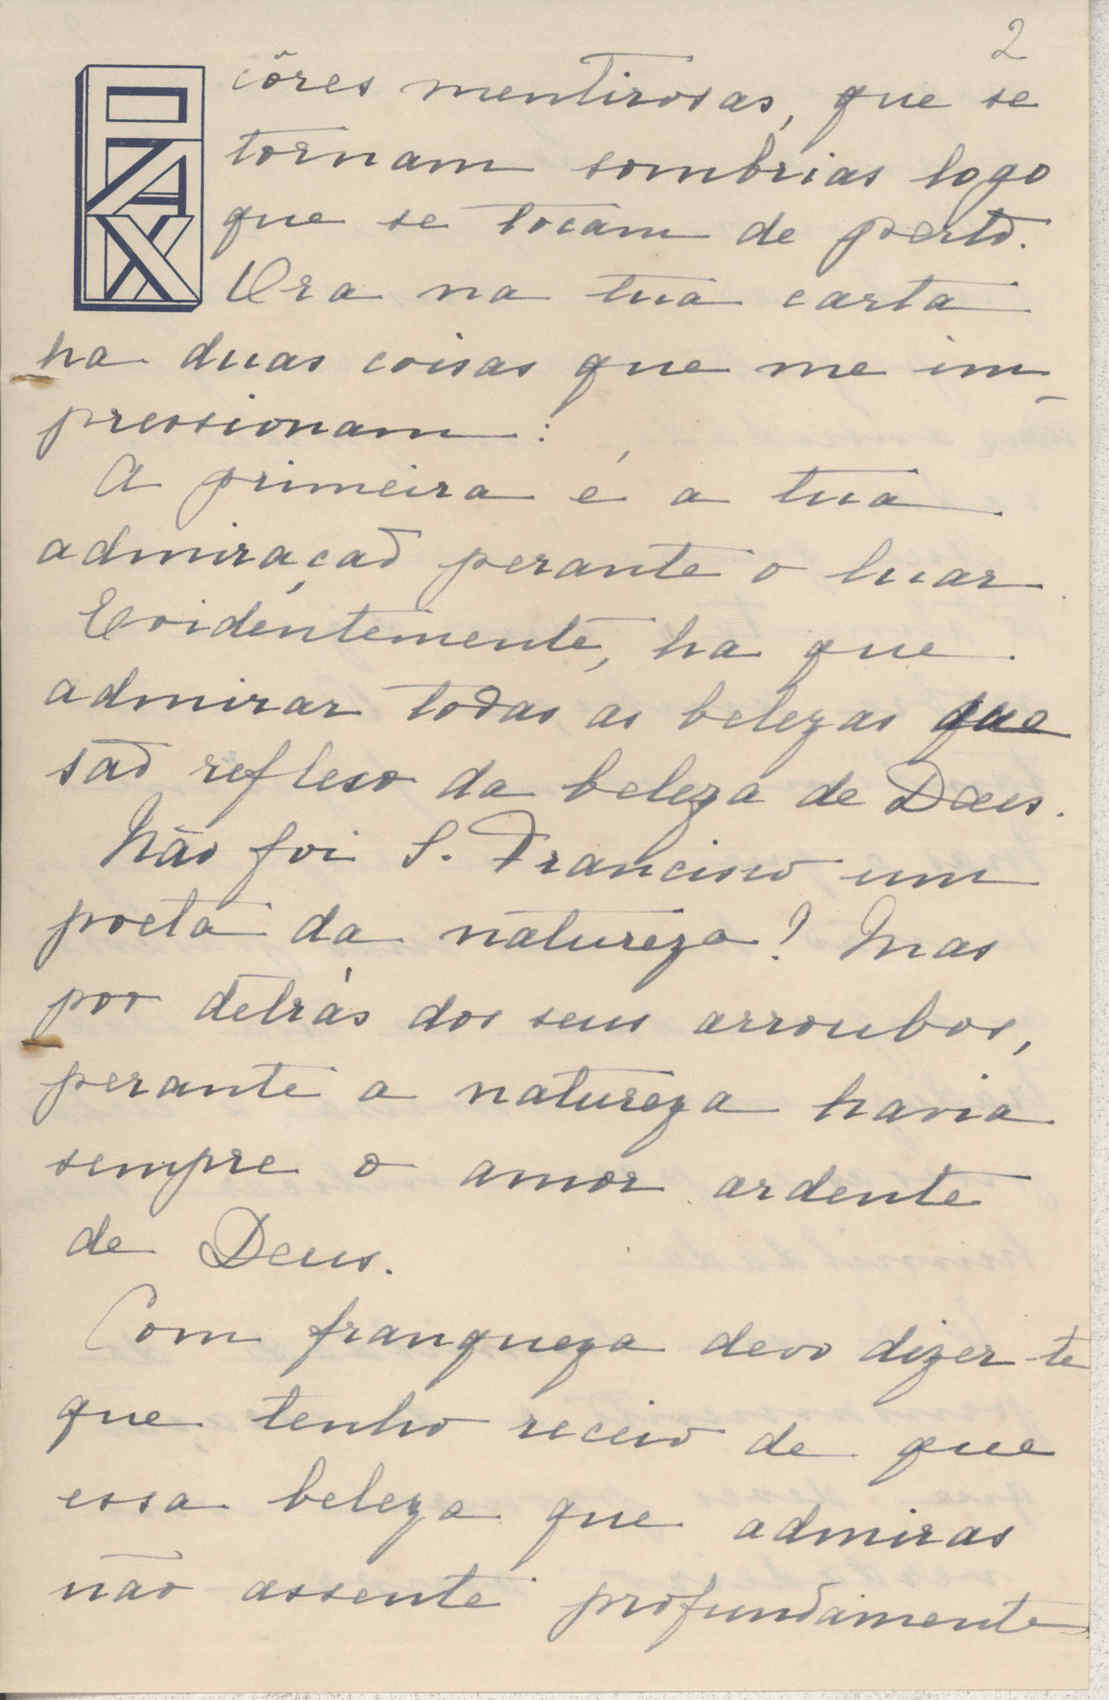 2
PAX
côres mentirosas, que se
tornam sombrias logo
que se tocam de perto.
Ora na tua carta
ha duas coisas que me im-
pressionam:
A primeira é a tua
admiração perante o luar.
Evidentemente, ha que
admirar todas as belezas que
são reflexo da beleza de Deus.
Não foi S. Francisco um
poeta da natureza? Mas
por detrás dos seus arroubos,
perante a natureza havia
sempre o amor ardente
de Deus.
Com franqueza devo dizer-te
que tenho receio de que
essa beleza que admiras
não assente profundamente